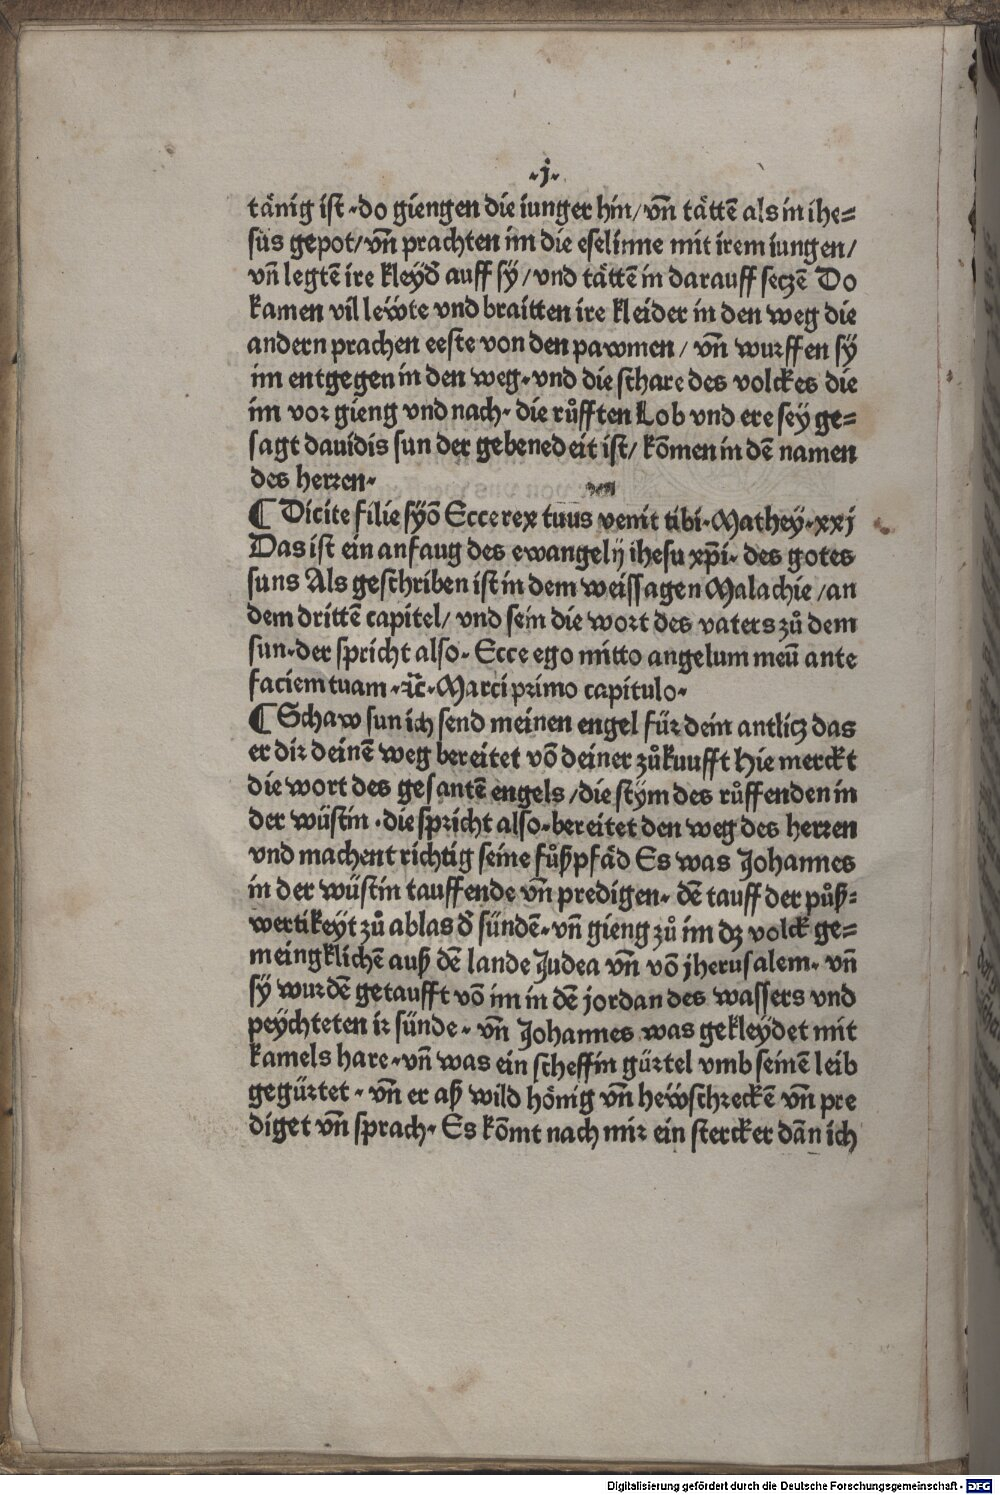 ·j·
tänig ist·do giengen die iunger hin/ vñ tättẽ als in ihe=
sus gepot/ vñ prachten im die eselinne mit irem iungen/
vñ legtẽ ire kleyđ auff sÿ/ vnd tättẽ in darauff seczẽ Do
kamen vil lewte vnd braitten ire kleider in den weg die
andern prachen eeste von den pawmen/ vñ wurffen sÿ
im entgegen in den weg· vnd die schare des volckes die
im vor gieng vnd nach· die růfften Lob vnd ere seÿ ge=
sagt dauidis sun der gebenedeit ist/ kõmen in dẽ namen
des herren·
¶ Dicite filie sÿõ Ecce rex tuus venit tibi·Matheÿ·xxj
Das ist ein anfaug des ewangelij ihesu xp̃i· des gotes
suns Als geschriben ist in dem weissagen Malachie/an
dem drittẽ capitel/ vnd sein die wort des vaters zů dem
sun·der spricht also· Ecce ego mitto angelum meũ ante
faciem tuam·ꝛc̃·Marci primo capitulo·
¶ Schaw sun ich send meinen engel für dein antlicz das
er dir deinẽ weg bereitet võ deiner zůkuufft Hie merckt
die wort des gesantẽ engels/die stÿm des růffenden in
der wüstin·die spricht also·bereitet den weg des herren
vnd machent richtig seine fůßpfäd Es was Johannes
in der wüstin tauffende vñ predigen· dẽ tauff der půß=
wertikeÿt zů ablas đ sündẽ·vñ gieng zů im dz volck ge=
meingklichẽ auß dẽ lande Judea vñ võ jherusalem· vñ
sÿ wurdẽ getaufft võ im in dẽ jordan des wassers vnd
peÿchteten ir sünde· vñ Johannes was gekleÿdet mit
kamels hare·vñ was ein scheffin gürtel vmb seinẽ leib
gegürtet· vñ er aß wild hönig vñ hewschreckẽ vñ pre
diget vñ sprach· Es kõmt nach mir ein stercker dãn ich
Digitalisierung gefördert durch die Deutsche Forschungsgemeinschaft - DFG